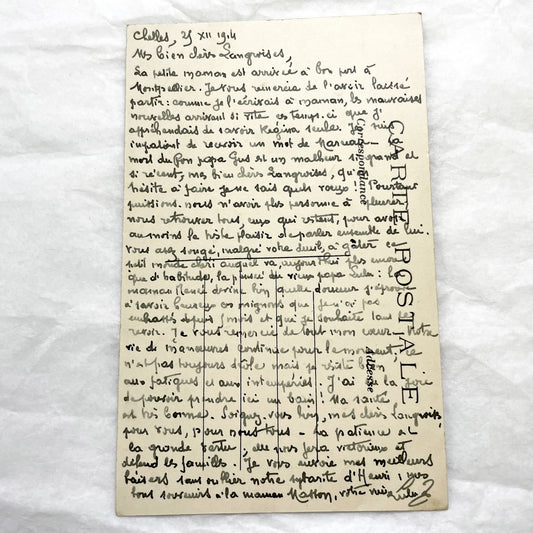 Chelles, 25 XII 1914
Mes bien chers Langroises,
La petite maman est arrivée à bon port à
Montpellier. Je vous remercie de l'avoir laissé
partir: comme je l'écrivais à maman, les mauvaises
nouvelles arrivant si vite ces temps-ci que j'
appréhendais de savoir Régina seule. Je suis
impatient de recevoir un mot de
mort du bon papa Gus est un malheur si grand et
si récent, mes bien chers Langroises, qu'on
hésite à faire je ne sais quels voeux! Pourtant
puissions-nous n'avoir plus personne à pleurer
nous retrouver tous, ceux qui restent, pour avoir
au moins la triste plaisir de parler ensemble de lui.
vous avez songé, malgré votre deuil, à gâter ce
petit monde chéri auquel va, aujourd'hui plus encore
que d'habitude, la pensée du vieux papa Lulu: la
maman Rence devine bien quelle douceur j'éprouve
à savoir heureux ces mignons que je n'ai pas
embrassés depuis 5 mois et que je souhaite tant de
revoir. Je vous remercie de tout mon coeur. Notre
vie de manoeuvres continue pour le moment, ce
n'est pas toujours drôle mais je résiste bien
aux fatigues et aux intempéries. J'ai eu la joie
de pouvoir prendre ici un bain! Ma santé
est très bonne. Soignez-vous bien, mes chers Langrois,
pour vous, pour nous tous - la patience est
la grande vertu; elle nous fera victorieux et
défend les familles. Je vous envoie mes meilleurs
baisers sans oublier notre sybarite d'Henri; mes
bons souvenirs à la maman Masson, votre vieux Lulu
CARTE POSTALE
Correspondance
Adresse